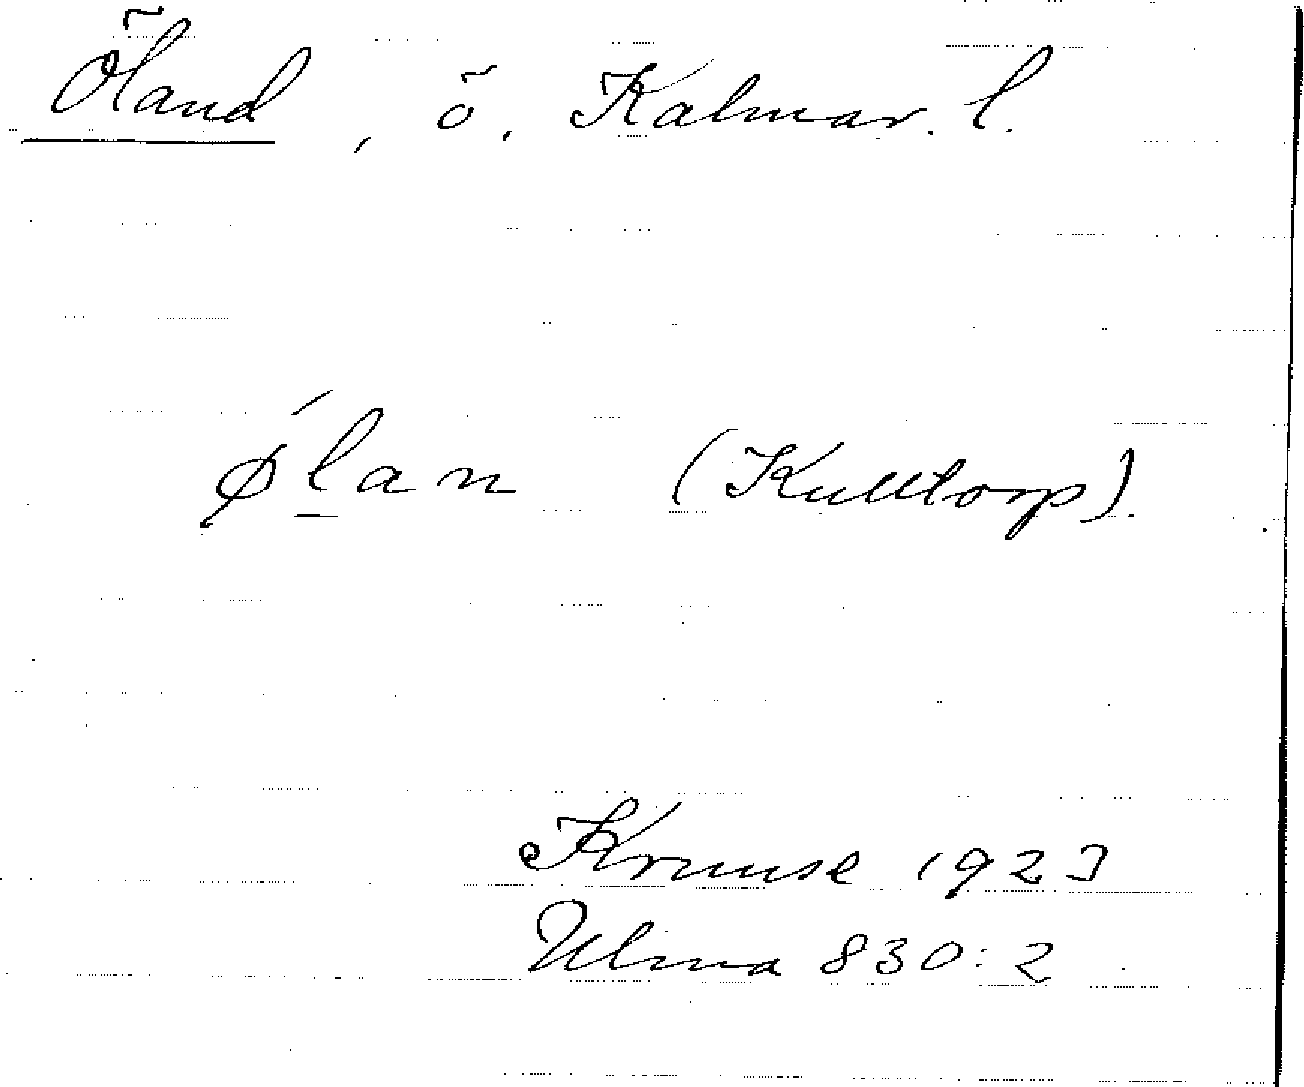 Öland, ö. Kalmar. l.
ǿlan (Kulltorp).
Kruuse 1923
Ulma 830:2